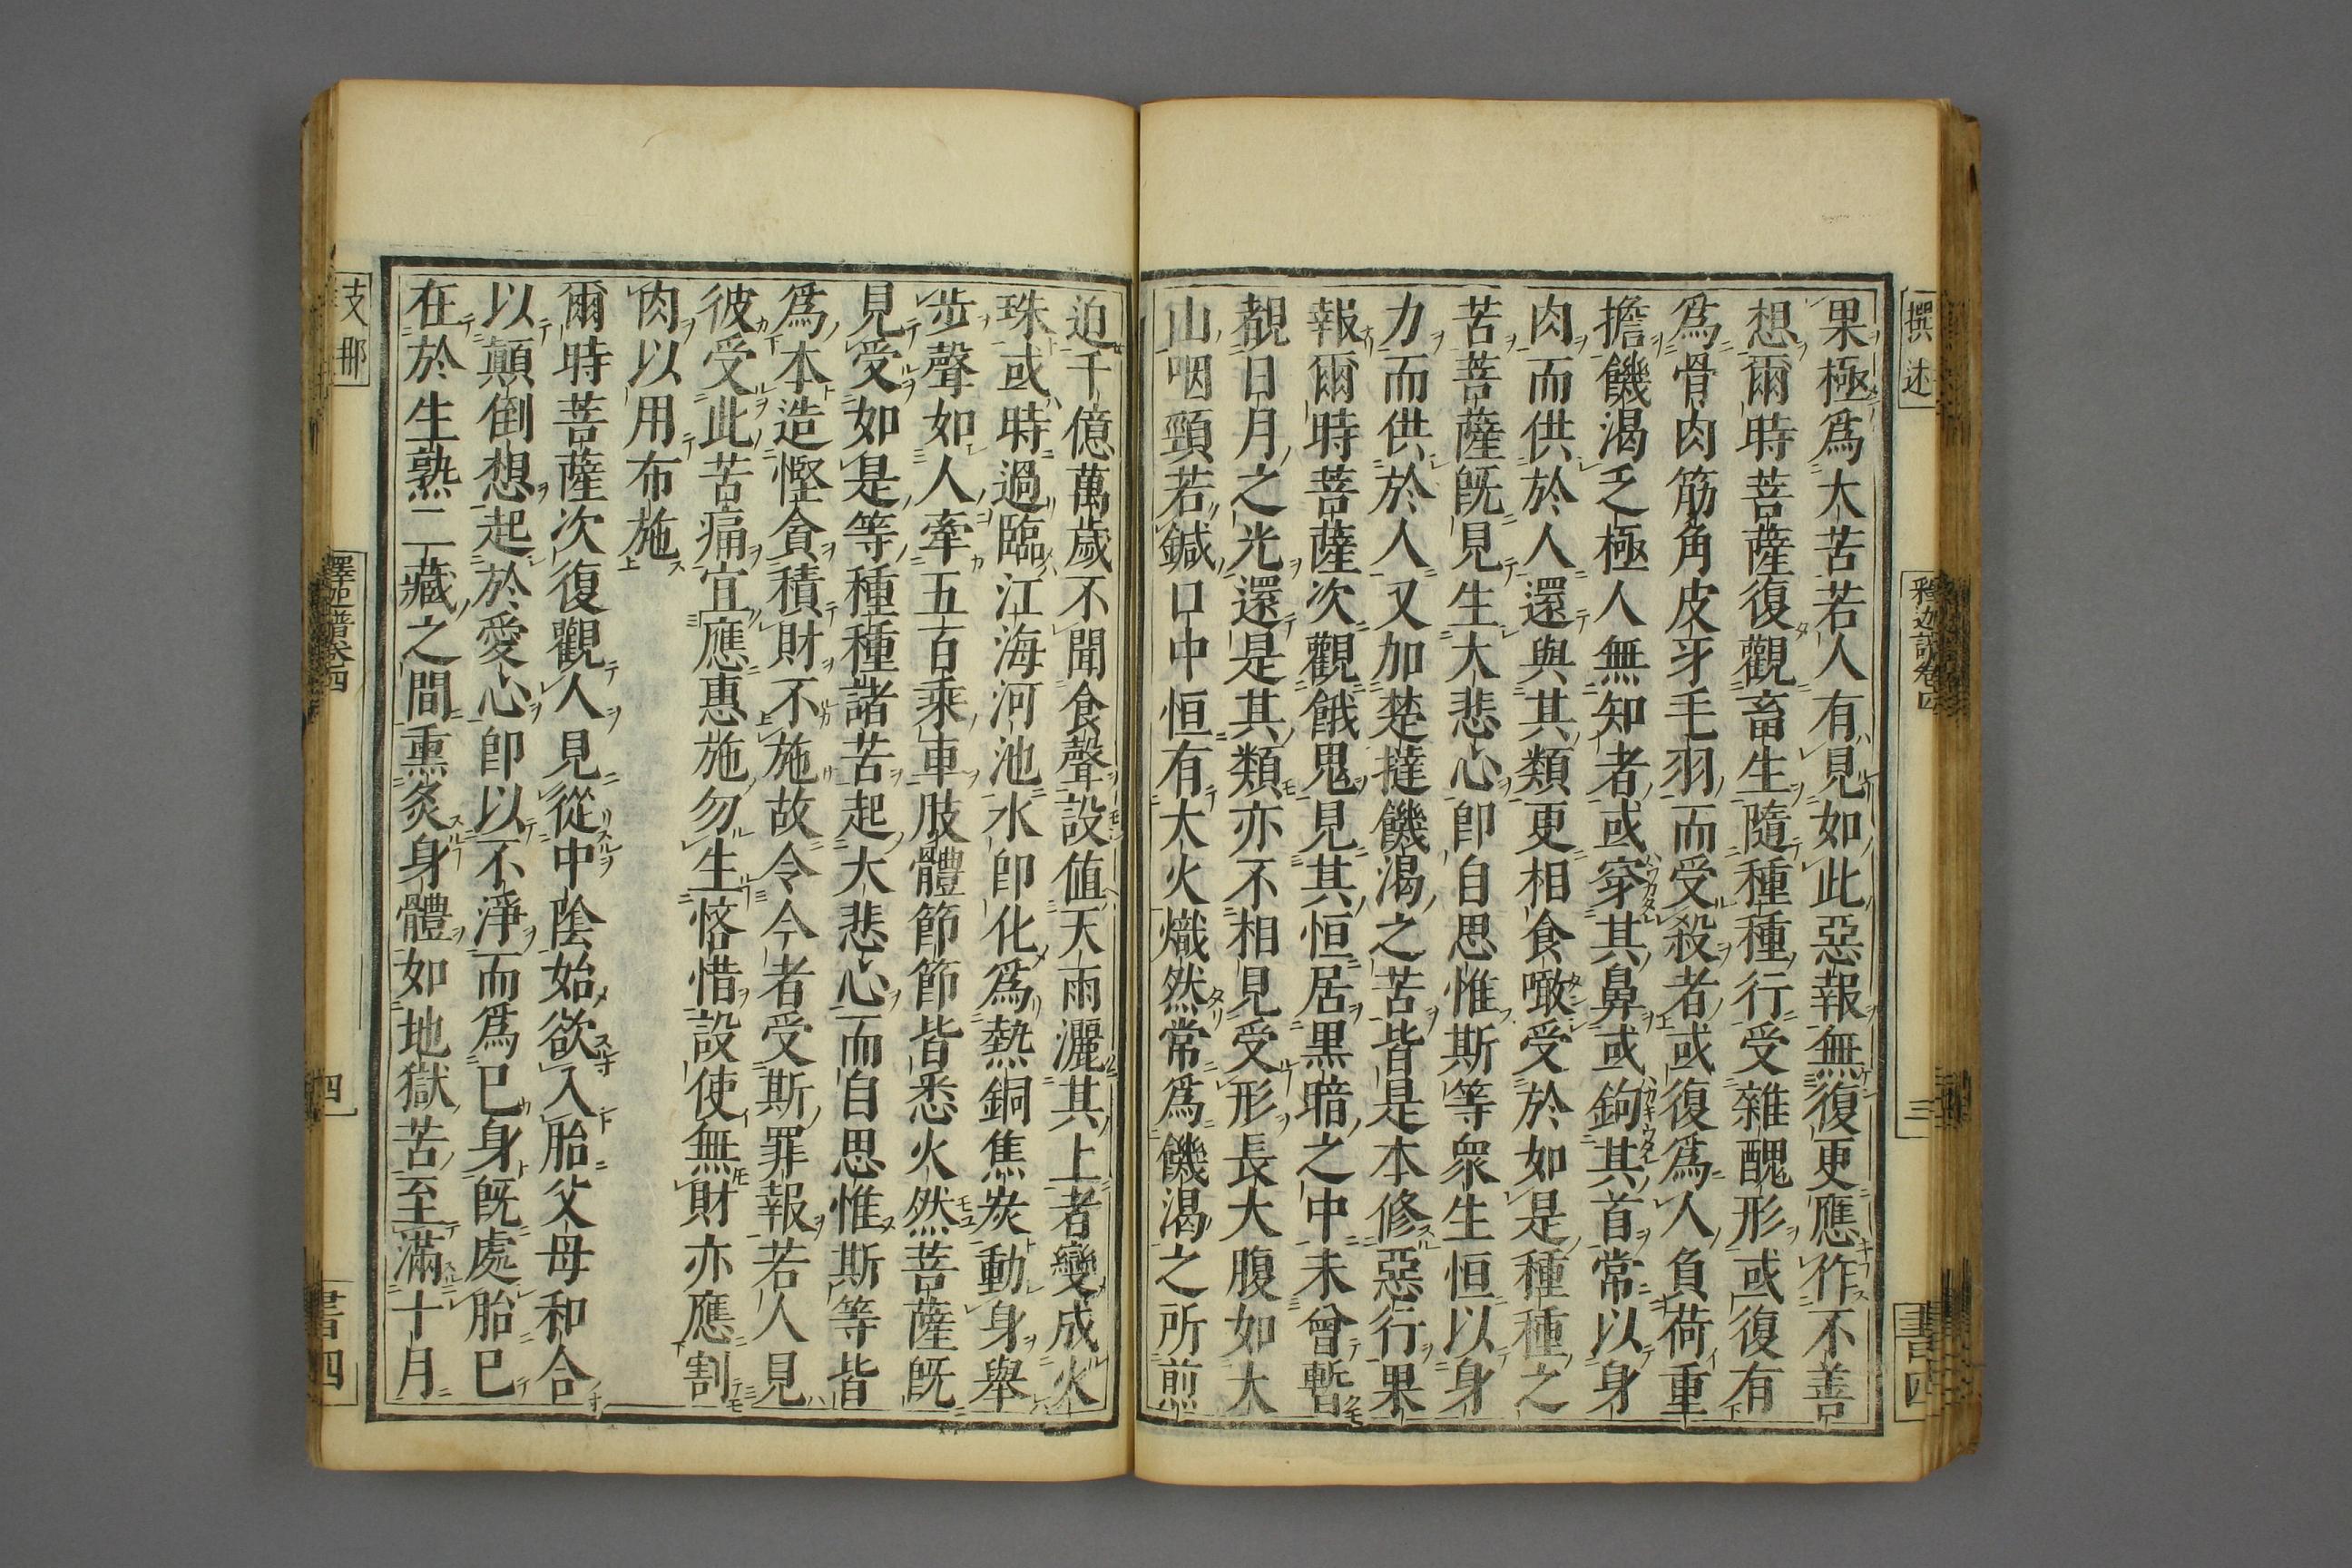 撰述
釋迦譜卷四
三
書四
果極爲大苦若人有見如此惡報無復更應作不善
想爾時菩薩復觀畜生隨種種行受雜醜形或復有
爲骨肉筋角皮牙毛羽而受殺者或復爲人負荷重
擔饑渴乏極人無知者或穿其鼻或鉤其首常以身
肉而供於人還與其類更相食噉受於如是種種之
苦菩薩旣見生大悲心卽自思惟斯等衆生恒以身
力而供於人又加楚撻饑渴之苦皆是本修惡行果
報爾時菩薩次觀餓鬼見其恒居黒暗之中未曾暫
覩日月之光還是其類亦不相見受形長大腹如大
山咽頸若鍼口中恒有大火熾然常爲饑渴之所煎
迫千億萬歲不聞食聲設値天雨灑其上者變成火
珠或時過臨江海河池水卽化爲熱銅焦炭動身舉
步聲如人牽五百乘車肢體節節皆悉火然菩薩旣
見受如是等種種諸苦起大悲心而自思惟斯等皆
爲本造慳貪積財不施故令今者受斯罪報若人見
彼受此苦痛宜應惠施勿生悋惜設使無財亦應割
肉以用布施
爾時菩薩次復觀人見從中陰始欲入胎父母和合
以顛倒想起於愛心卽以不淨而爲已身旣處胎已
在於生熟二藏之間熏炙身體如地獄苦至滿十月
支那
釋迦譜卷四
四
書四